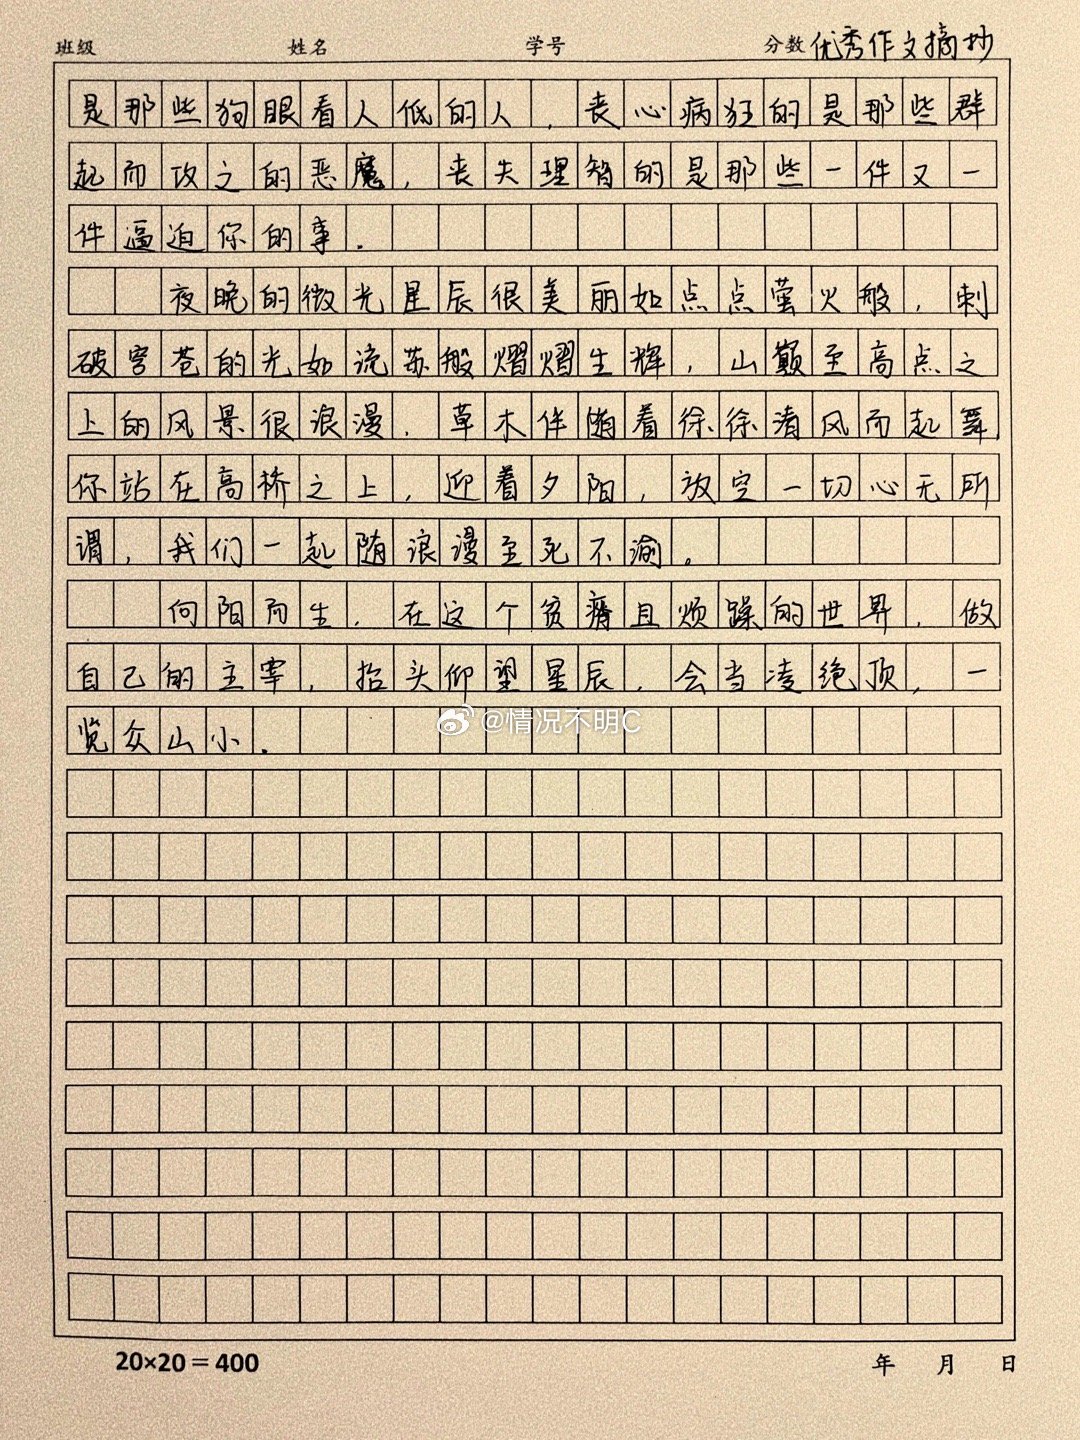 班级 姓名 学号 分数 优秀作文摘抄
是那些狗眼看人低的人，丧心病狂的是那些群
起而攻之的恶魔，丧失理智的是那些一件又一
件逼迫你的事.
夜晚的微光星辰很美丽如点点萤火般，刺
破穹苍的光如流苏般熠熠生辉，山巅至高点之
上的风景很浪漫.草木伴随着徐徐清风而起舞,
你站在高桥之上，迎着夕阳，放空一切心无所
谓，我们一起随浪漫至死不渝。
向阳而生，在这个贫瘠且烦躁的世界，做
自己的主宰，抬头仰望星辰，会当凌绝顶，一
览众山小.
@情况不明C
20×20＝400 年 月 日